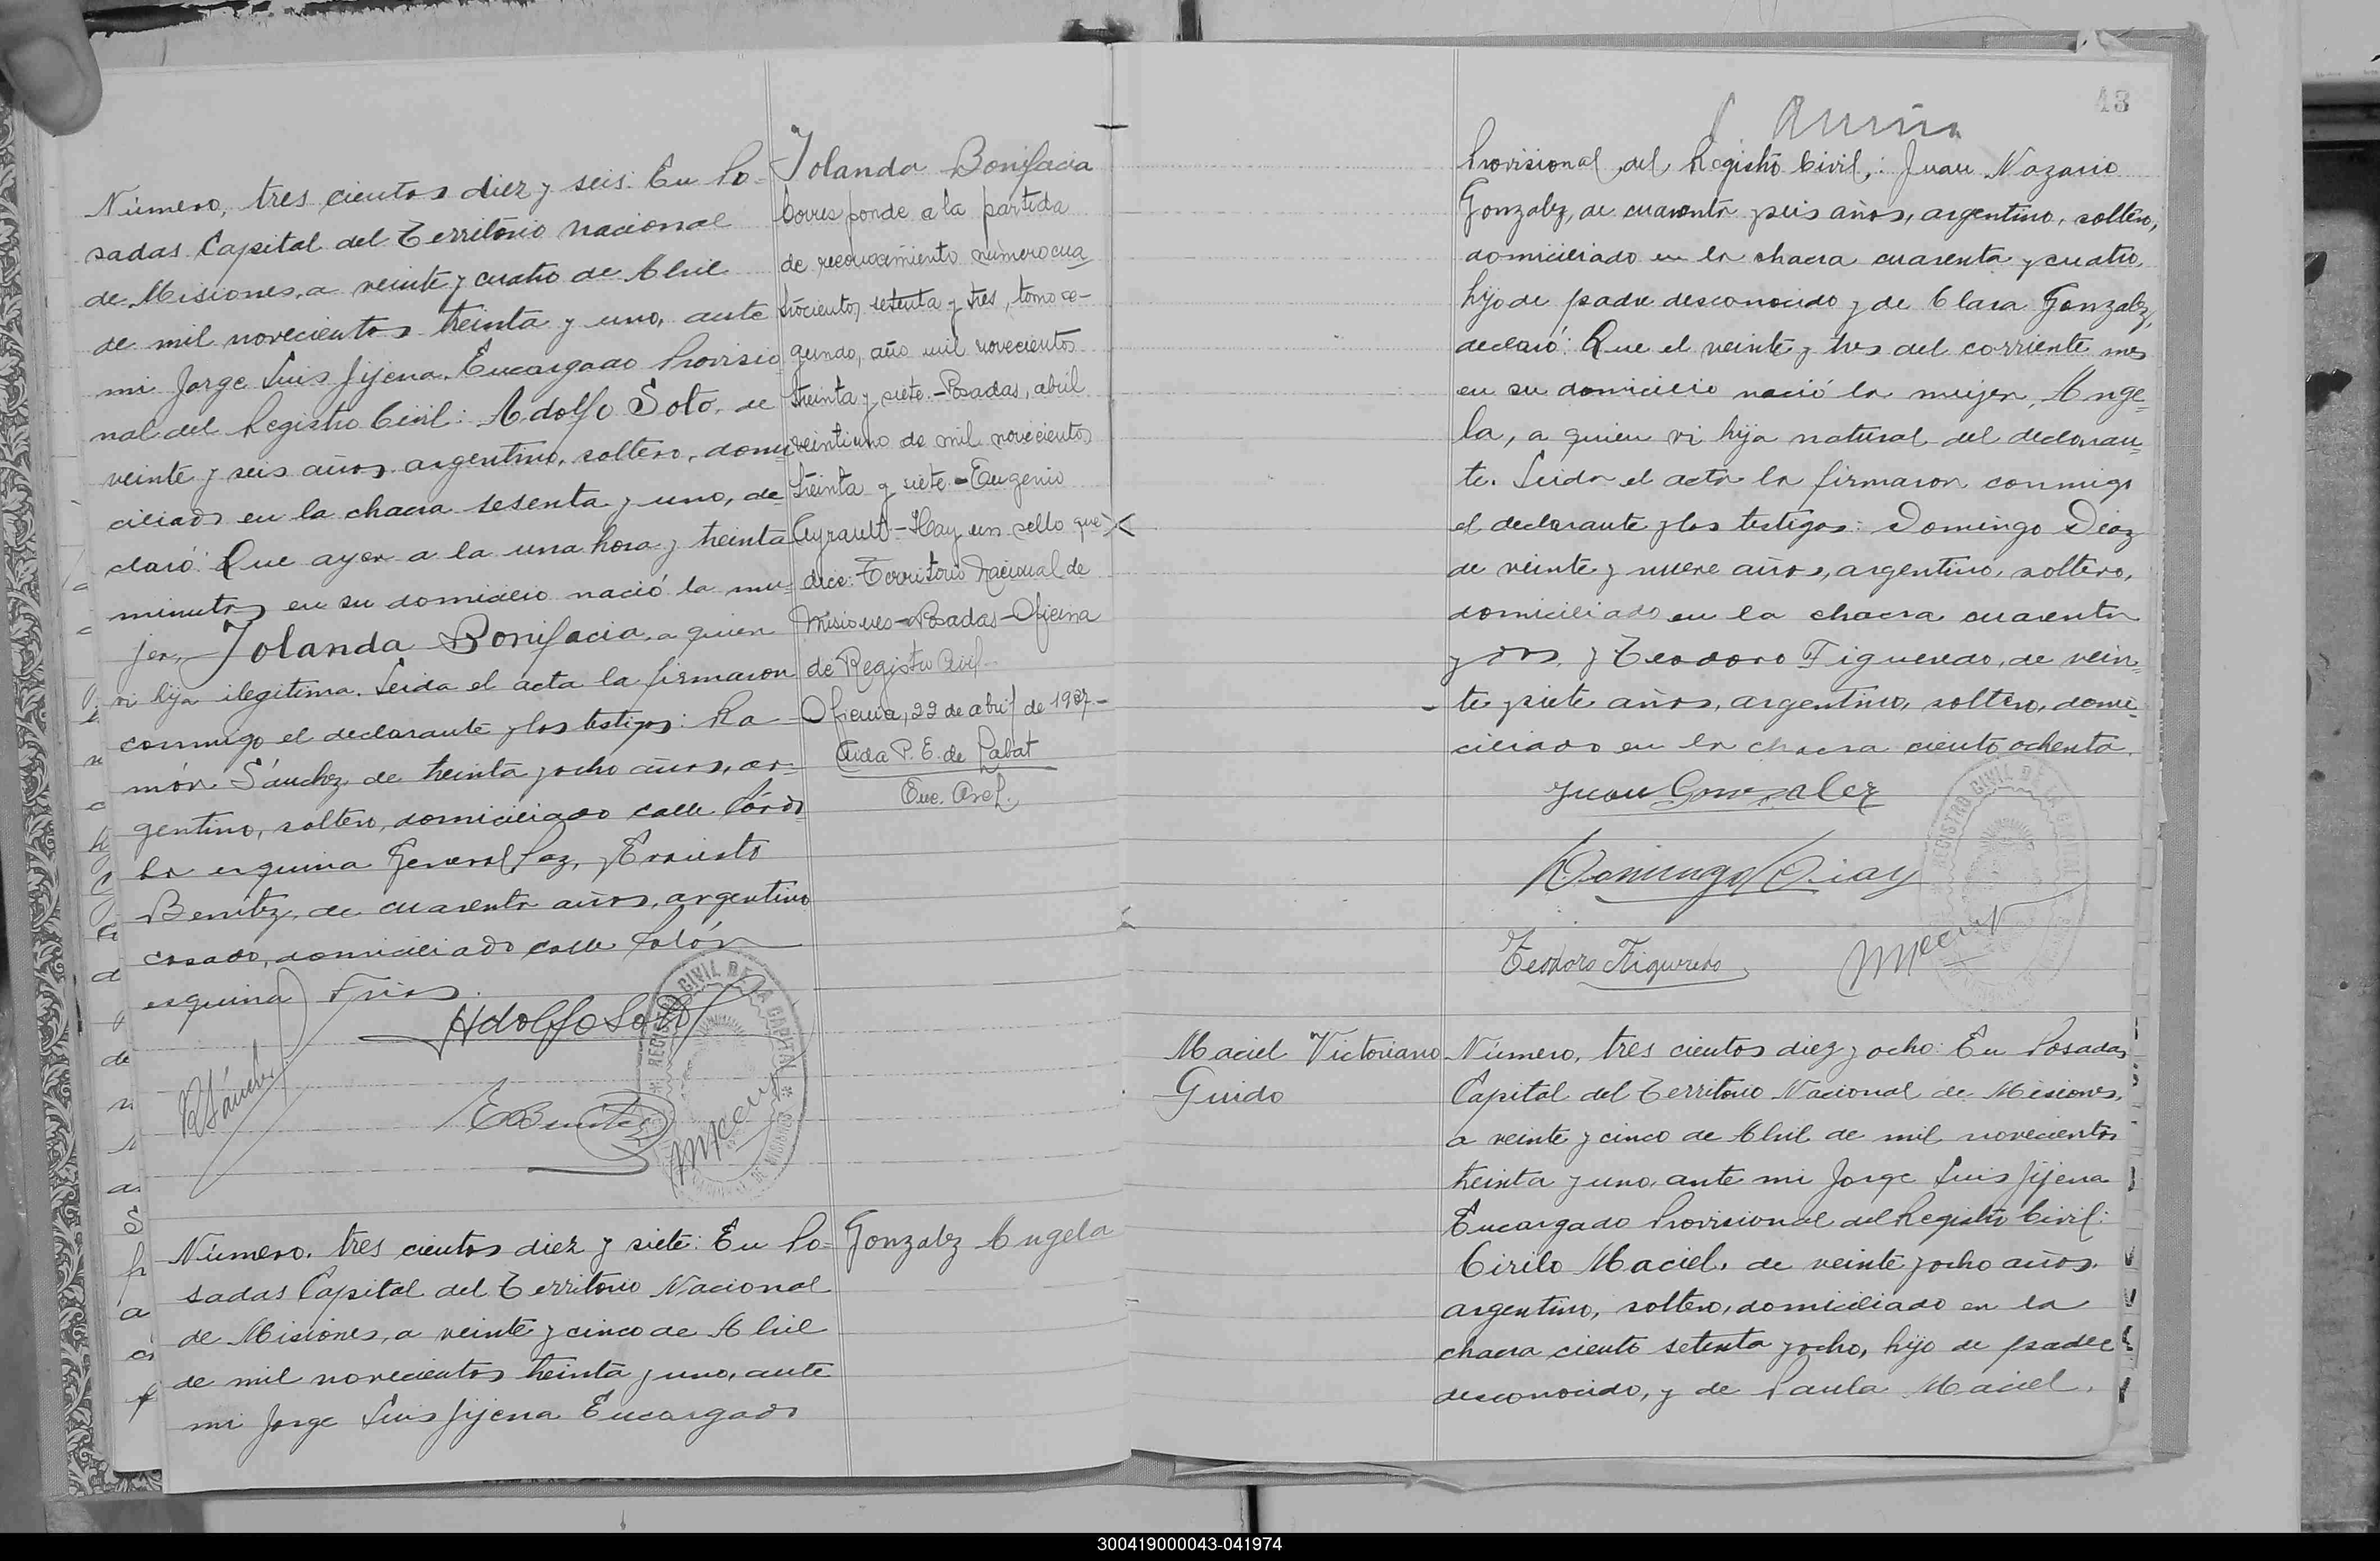 Número, tres cientos diez y seis: En Po-
sadas Capital del Territorio nacional
de Misiones, a veinte y cuatro de Abril
de mil novecientos treinta y uno, ante
mi Jorge Luis Jijena, Encargado Provisio
nal del Registro Civil: Adolfo Soto, de
veinte y seis años, argentino, soltero, domi
ciliado en la chacra sesenta y uno, de-
claró: Que ayer a la una hora y treinta
minutos en su domicilio nació la mu-
jer, Iolanda Bonifacia, a quien
vi hija ilegitima. Leida el acta la firmaron
conmigo el declarante y los testigos: Ra-
món Sánchez, de treinta y ocho años, ar-
gentino, soltero, domiciliado calle Córdo
ba esquina General Paz, y Ernesto
Benítez, de cuarenta años, argentino
casado, domiciliado calle Colón
esquina Frias.
Adolfo Soto
R Sánchez
E Benitez
REGISTRO CIVIL DE LA CAPITAL
Iolanda Bonifacia
Corresponde a la partida
de reconocimiento número cua
trocientos setenta y tres, tomo se-
gundo, año mil novecientos
treinta y siete.-Posadas, abril
veintiuno de mil novecientos
treinta y siete-Eugenio
Ayrault-Hay un sello que
dice: Territorio Nacional de
Misiones-Posadas-Oficina
de Registro Civil-
Oficina, 22 de abril de 1937-
Aida P. E. de Labat
Enc. Arch.
Número, tres cientos diez y siete: En Po-
sadas Capital del Territorio Nacional
de Misiones, a veinte y cinco de Abril
de mil novecientos treinta y uno, ante
mi Jorge Luis Jijena Encargado
Gonzalez Angela
43
Provisional del Registro Civil,: Juan Nazario
Gonzalez, de cuarenta y seis años, argentino, soltero,
domiciliado en la chacra cuarenta y cuatro,
hijo de padre desconocido y de Clara Gonzalez,
declaró: Que el veinte y tres del corriente mes
en su domicilio nació la mujer, Ange-
la, a quien vi hija natural del declaran-
te. Leida el acta la firmaron conmigo
el declarante y los testigos: Domingo Diaz
de veinte y nueve años, argentino, soltero,
domiciliado en la chacra cuarenta
y dos, y Teodoro Figueredo, de vein-
te y siete años, argentino, soltero, domi-
ciliado en la chacra ciento ochenta.
Juan Gonzalez
Domingo Diaz
Teodoro Figueredo
REGISTRO CIVIL DE LA CAPITAL
Maciel Victoriano
Guido
Número, tres cientos diez y ocho: En Posadas
Capital del Territorio Nacional de Misiones,
a veinte y cinco de Abril de mil novecientos
treinta y uno, ante mi Jorge Luis Jijena
Encargado Provisional del Registro Civil:
Cirilo Maciel, de veinte y ocho años,
argentino, soltero, domiciliado en la
chacra ciento setenta y ocho, hijo de padre
desconocido, y de Paula Maciel,
300419000043-041974